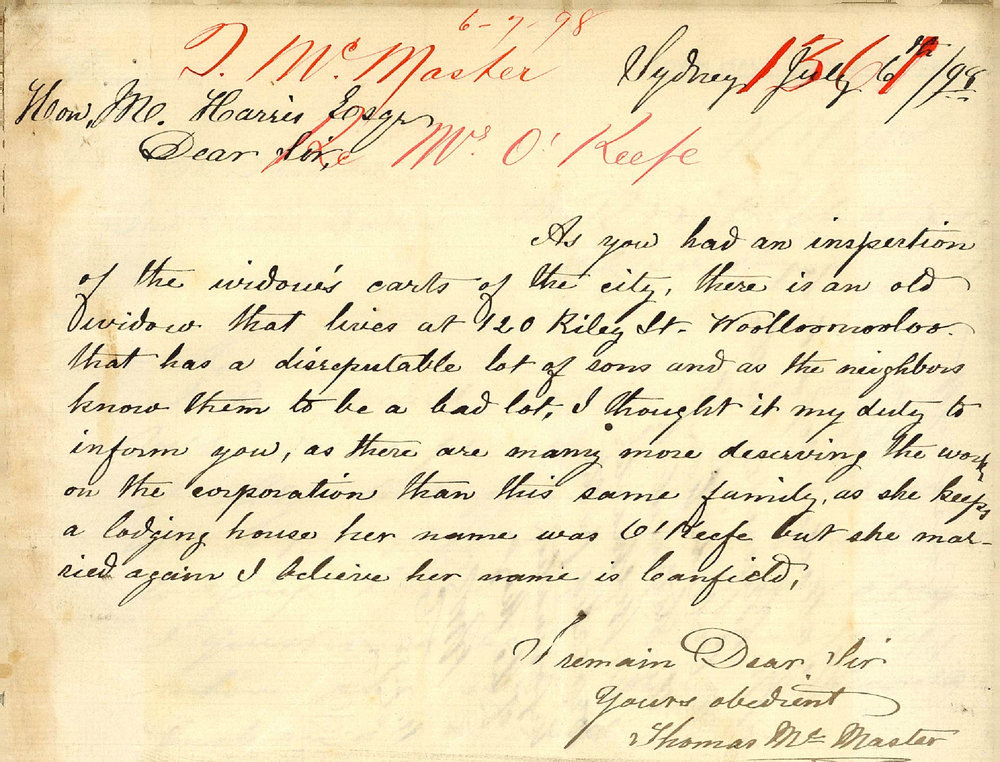 6-7-98
T. McMaster 1361
Sydney July 6th/98
Hon, M. Harris Esqr
Re Mrs O'Keefe
Dear Sir,
As you had an inspection
of the widow's carts of the city, there is an old
widow that lives at 120 Riley St. Woolloomooloo.
that has a disreputable lot of sons and as the neighbors
know them to be a bad lot, I thought it my duty to
inform you, as there are many more deserving the work
on the corporation than this same family, as she keeps
a lodging house her name was O'Keefe but she mar-
ried again I believe her name is Canfield,
I remain Dear Sir
Yours obedient
Thomas Mc Master